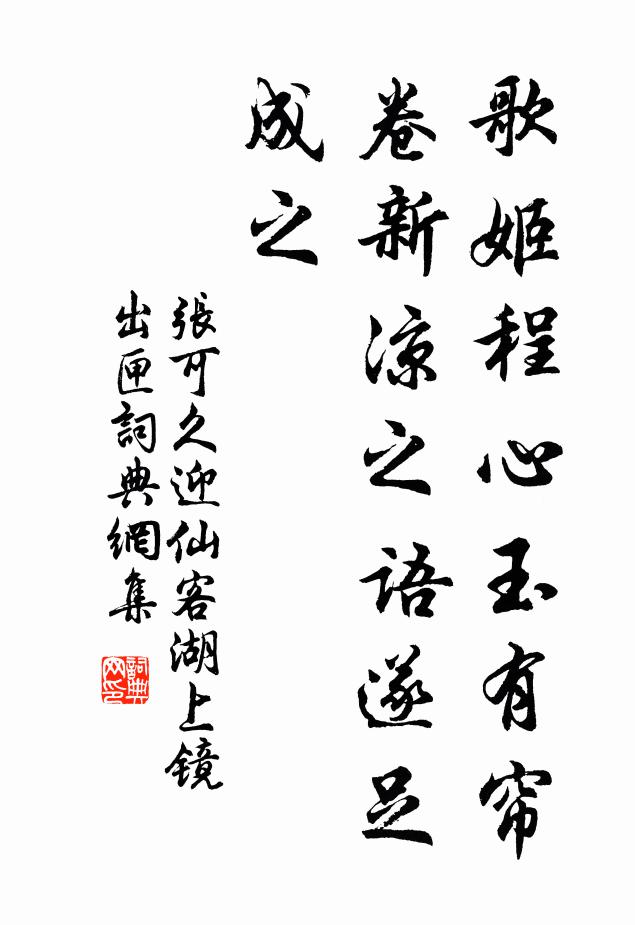 歌姬程心玉有帘
卷新凉之語遂足
成之
張可久迎仙客湖上鏡
出匣詞典網集
詞典网印